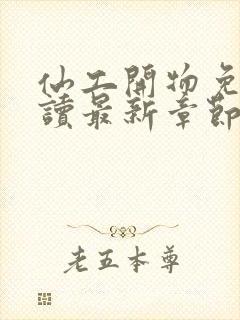 仙工開物免
讀最新章節
老五本尊